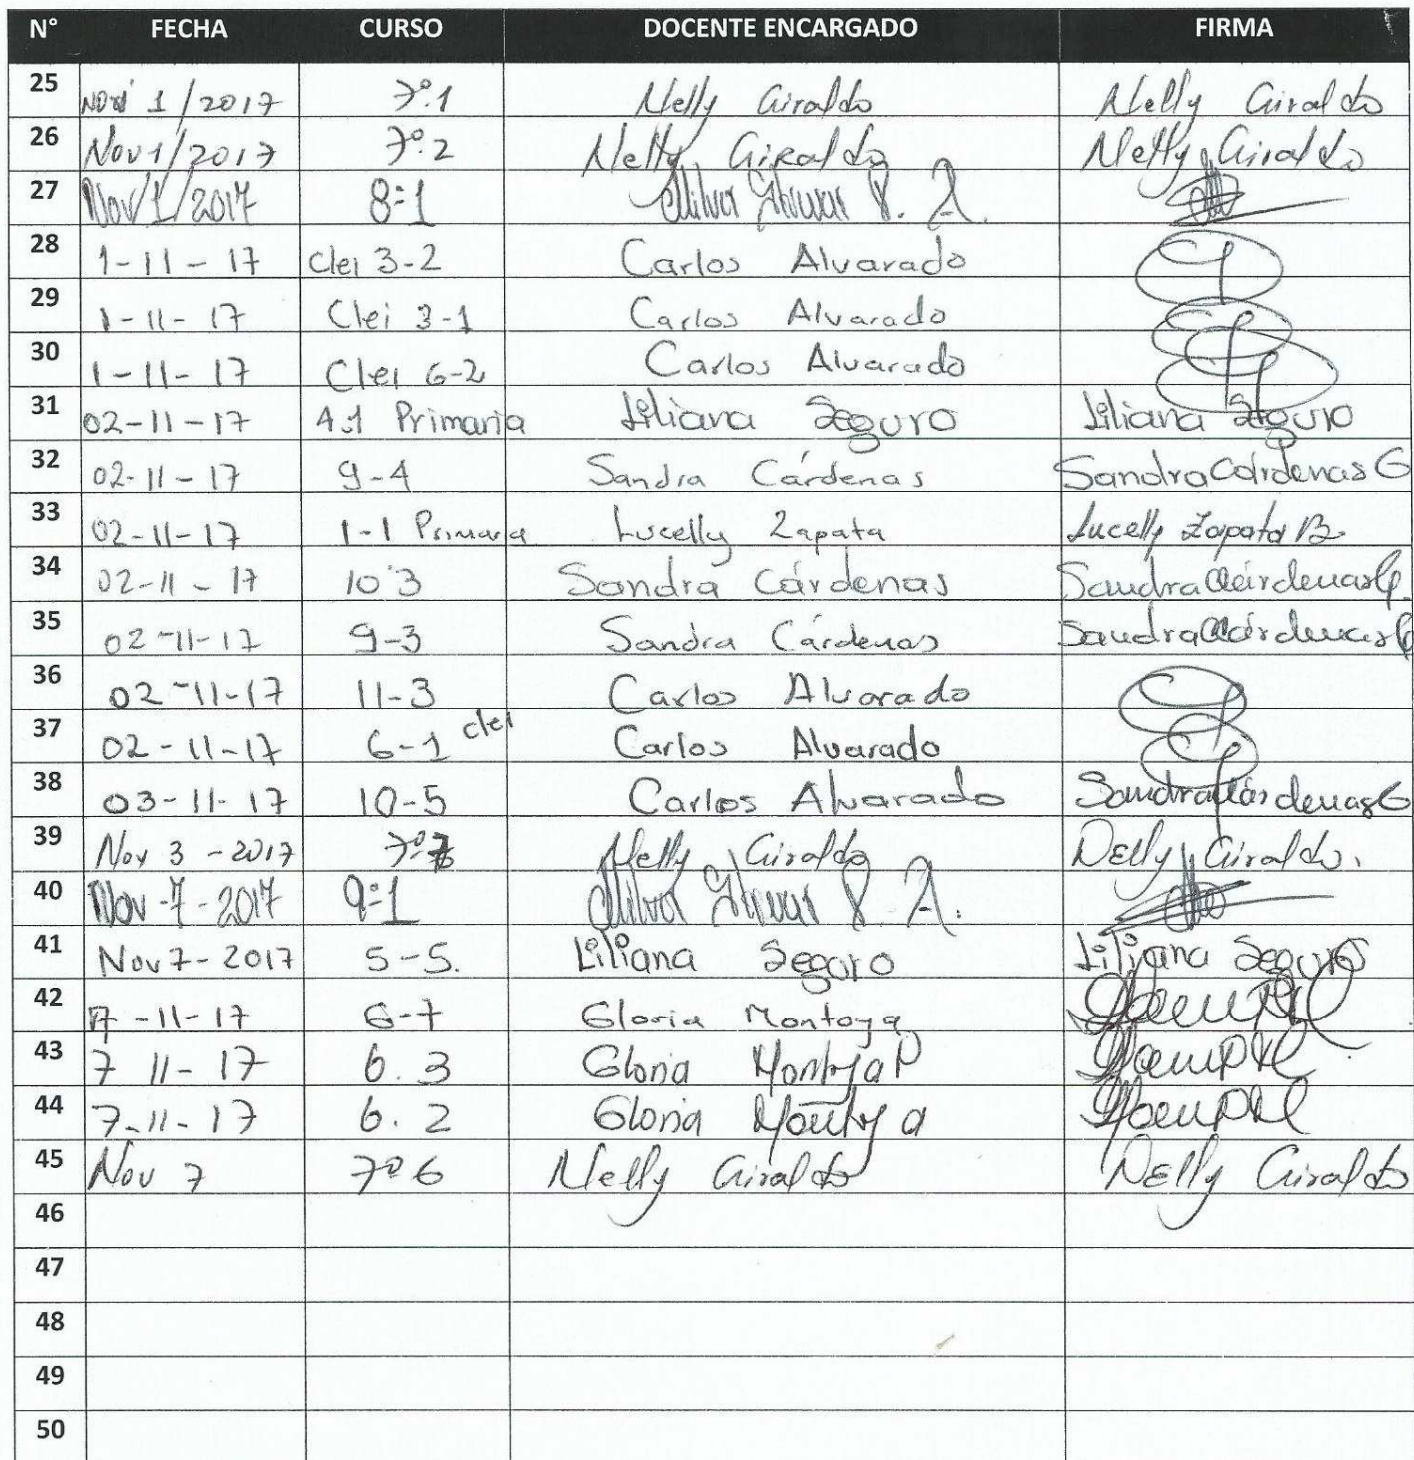 N° FECHA CURSO DOCENTE ENCARGADO FIRMA
25 Nov 1/2017 7°.1 Nelly Giraldo Nelly Giraldo
26 Nov 1/2017 7°.2 Nelly Giraldo Nelly Giraldo
27 Nov/1/2017 8=1
28 1-11-17 Clei 3-2 Carlos Alvarado
29 1-11-17 Clei 3-1 Carlos Alvarado
30 1-11-17 Clei 6-2 Carlos Alvarado
31 02-11-17 4.1 Primaria Liliana Seguro Liliana Seguro
32 02-11-17 9-4 Sandra Cárdenas Sandra Cárdenas G
33 02-11-17 1-1 Primaria Lucelly Zapata Lucelly Zapata B.
34 02-11-17 10°3 Sandra Cárdenas Sandra Cárdenas G.
35 02-11-17 9-3 Sandra Cárdenas Sandra Cárdenas G
36 02-11-17 11-3 Carlos Alvarado
37 02-11-17 6-1 clei Carlos Alvarado
38 03-11-17 10-5 Carlos Alvarado Sandra Cárdenas G
39 Nov 3-2017 Nelly Giraldo Nelly Giraldo.
40 Nov-7-2017 9=1
41 Nov 7-2017 5-5. Liliana Seguro Liliana Seguro
42 7-11-17 6-7 Gloria Montoya
43 7 11-17 6.3 Gloria Montoya P
44 7-11-17 6.2 Gloria Montoya
45 Nov 7 7°6 Nelly Giraldo Nelly Giraldo
46
47
48
49
50